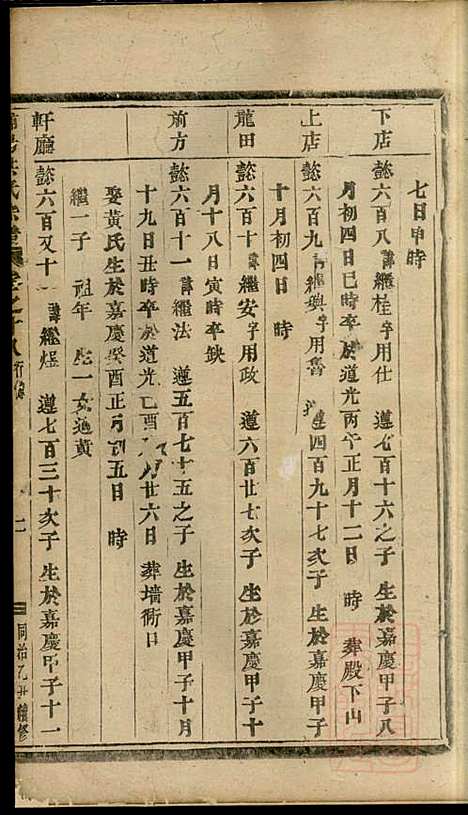 七日申時
下店 懿六百八 諱繼桂字用仕 遵七百十六之子 生於嘉慶甲子八
月初四日巳時卒於道光丙午正月十二日 時 葬殿下山
上店 懿六百九 諱繼輿字用魯 遵四百九十七次子 生於嘉慶甲子
十月初四日 時
龍田 懿六百十 諱繼安字用政 遵六百廿七次子 生於嘉慶甲子十
月十八日寅時卒缺
前方 懿六百十一 諱繼法 遵五百七十五之子 生於嘉慶甲子十月
十九日丑時卒於道光己酉 月廿六日 葬墻衕口
娶黃氏生於嘉慶癸酉正月初五日 時
繼一子 祖年 生一女適黃
軒廳 懿六百又十 諱繼煜 遵七百三十次子 生於嘉慶甲子十一
氏宗譜 卷之十八 行傳 二 同治乙丑續修